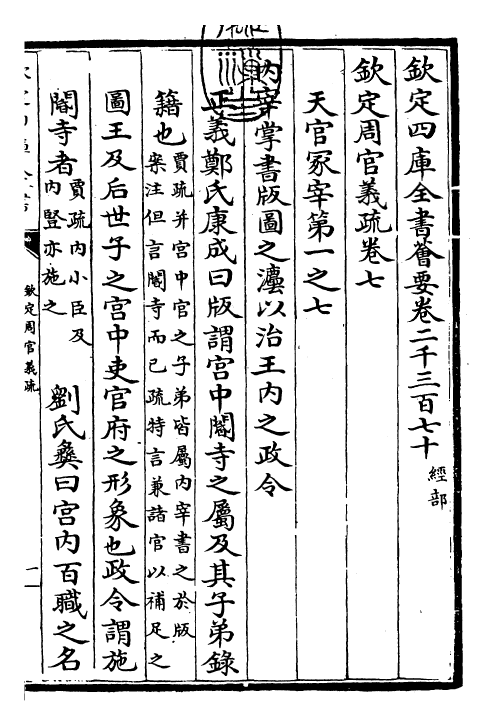 欽定四庫全書薈要卷二千三百七十 經部
欽定周官義疏卷七
天官冢宰第一之七
内宰掌書版圖之灋以治王内之政令
正義鄭氏康成曰版謂宫中閽寺之屬及其子弟錄
籍也賈疏并宫中官之子弟皆屬内宰書之於版
案注但言閽寺而已疏特言兼諸官以補足之
圖王及后世子之宫中吏官府之形象也政令謂施
閽寺者賈疏内小臣及
内豎亦施之
劉氏彝曰宫内百職之名
欽定周官義疏
一